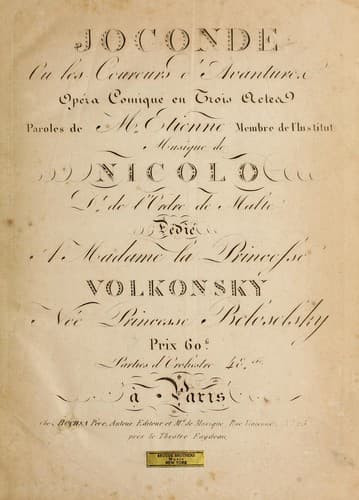 JOCONDE
Ou les Coureurs d'Avantures
Opéra Comique en Trois Actes
Paroles de Mr. Etienne Membre de l'Institut
Musique de
NICOLO
Dr. de l'Ordre de Malte
Dédié
A Madame la Princesse
VOLKONSKY
Née Princesse Beloselsky
Prix 60f
Parties d'Orchestre 48.
à Paris
Chez BOCHSA Père, Auteur Editeur et Md. de Musique, Rue Vivienne, No. 25
près le Théâtre Faydeau
BROUDE BROTHERS
Music
NEW YORK